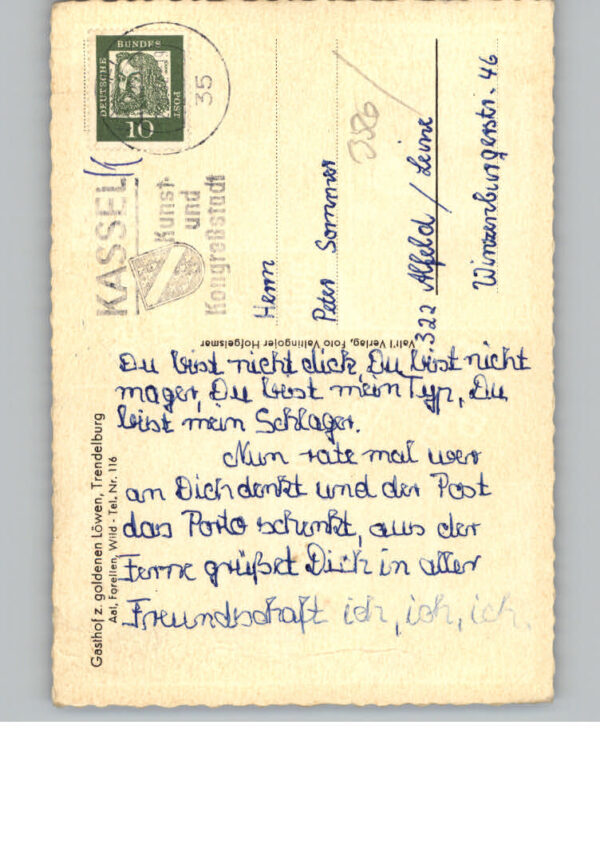 DEUTSCHE
BUNDES
POST
10
35
KASSEL
Kunst-
und
Kongreßstadt
Herrn
Peter Sommer
322 Alfeld / Leine
Winzenburgerstr. 46
Valt'l Verlag, Foto Veltingojer Hofgeismar
Gasthof z. goldenen Löwen, Trendelburg
Aal, Forellen, Wild - Tel. Nr. 116
Du bist nicht dick, Du bist nicht
mager, Du bist mein Typ, Du
bist mein Schlager.
Nun rate mal wer
an Dich denkt und der Post
das Porto schenkt, aus der
Ferne grüßet Dich in aller
Freundschaft ich, ich, ich.